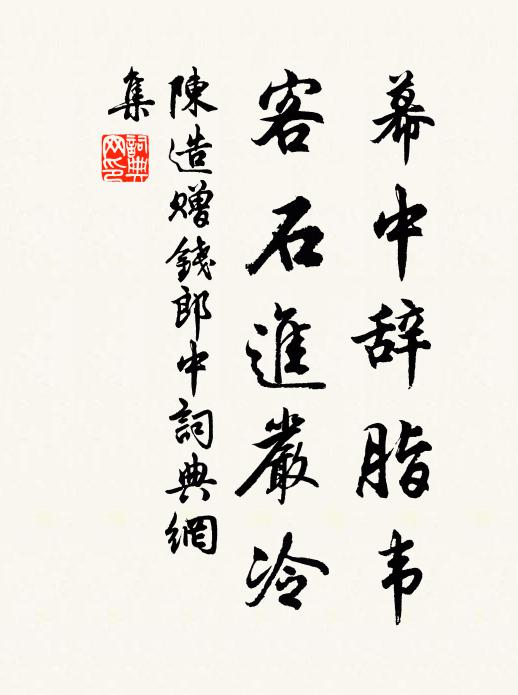 幕中辞脂韦
客石進嚴冷
陳造贈錢郎中詞典網
集
詞典网印